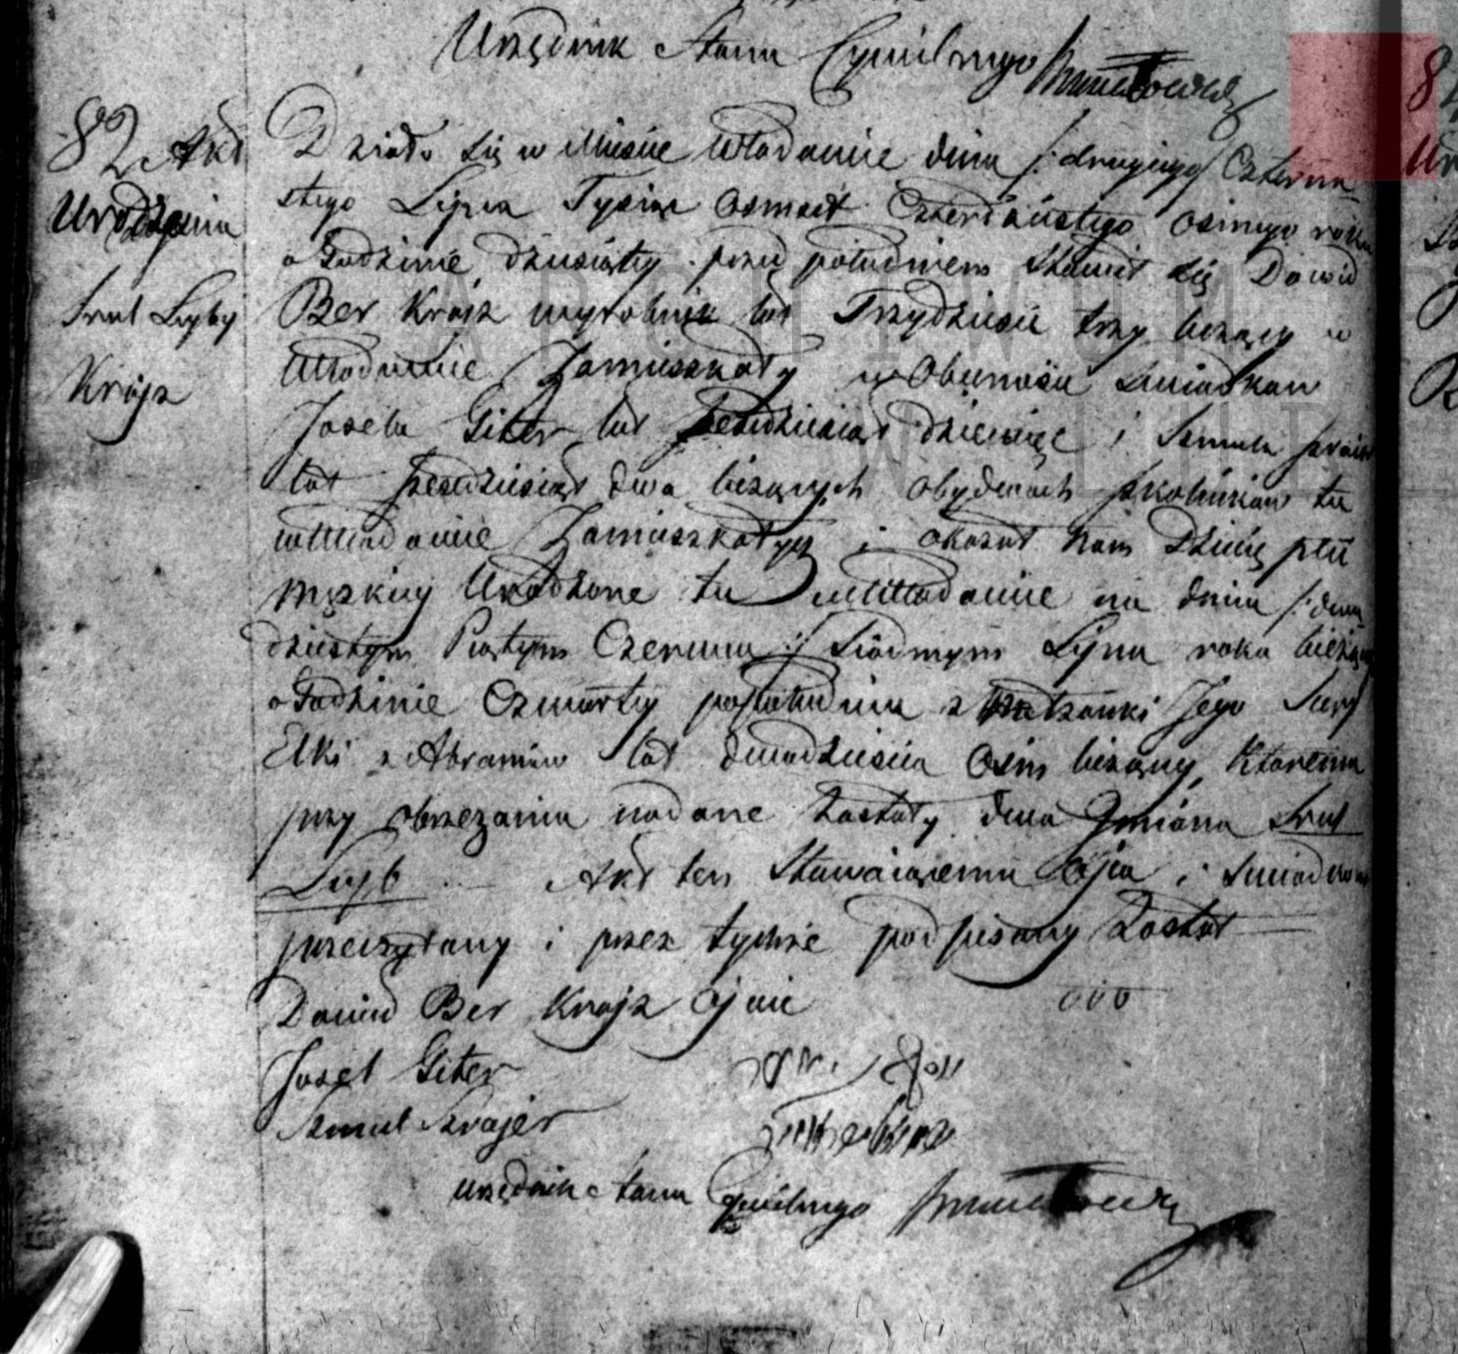 Urzędnik Stanu Cywilnego
82 Akt
Urodzenia
Srul Lyby
Krójz
Działo się w Mieście Włodawie dnia /: drugiego/ Czterna
stego Lipca Tysiąc Osmset Czterdziestego osmego roku
o Godzinie dziesiąty przed południem Stawił się Dawid
Ber Krojz wyrobnik lat Trzydzieści trzy liczący w
Włodawie Zamieszkały w Obecności Swiadkow
Josela Giter lat pięćdziesiąt dziewięć i Szmula
lat pięćdziesiąt dwa liczących obydwoch szkolnikow tu
w Włodawie Zamieszkałych i okazał nam Dziecię płci
męzkiey Urodzone tu w Włodawie na dniu /: dwu
dziestym Piątym Czerwca :/ Siódmym Lipca roku bieżą
o Godzinie Czwarty popołudniu z Małżonki Jego Sury
Elki z Abramów lat dwadzieścia Ośm liczący, Któremu
przy obrzezaniu nadane zostały dwa Jmiona Srul
Lyb Akt ten Stawaiącemu Ojcu i Swiadkom
przeczytany i przez tychże podpisany został
Dawid Ber Krojz Ojciec ooo
Josel Giter
Szmul Szrajer
Urzędnik Stanu Cywilnego
ARCHIWUM
W LUB
8
Ur